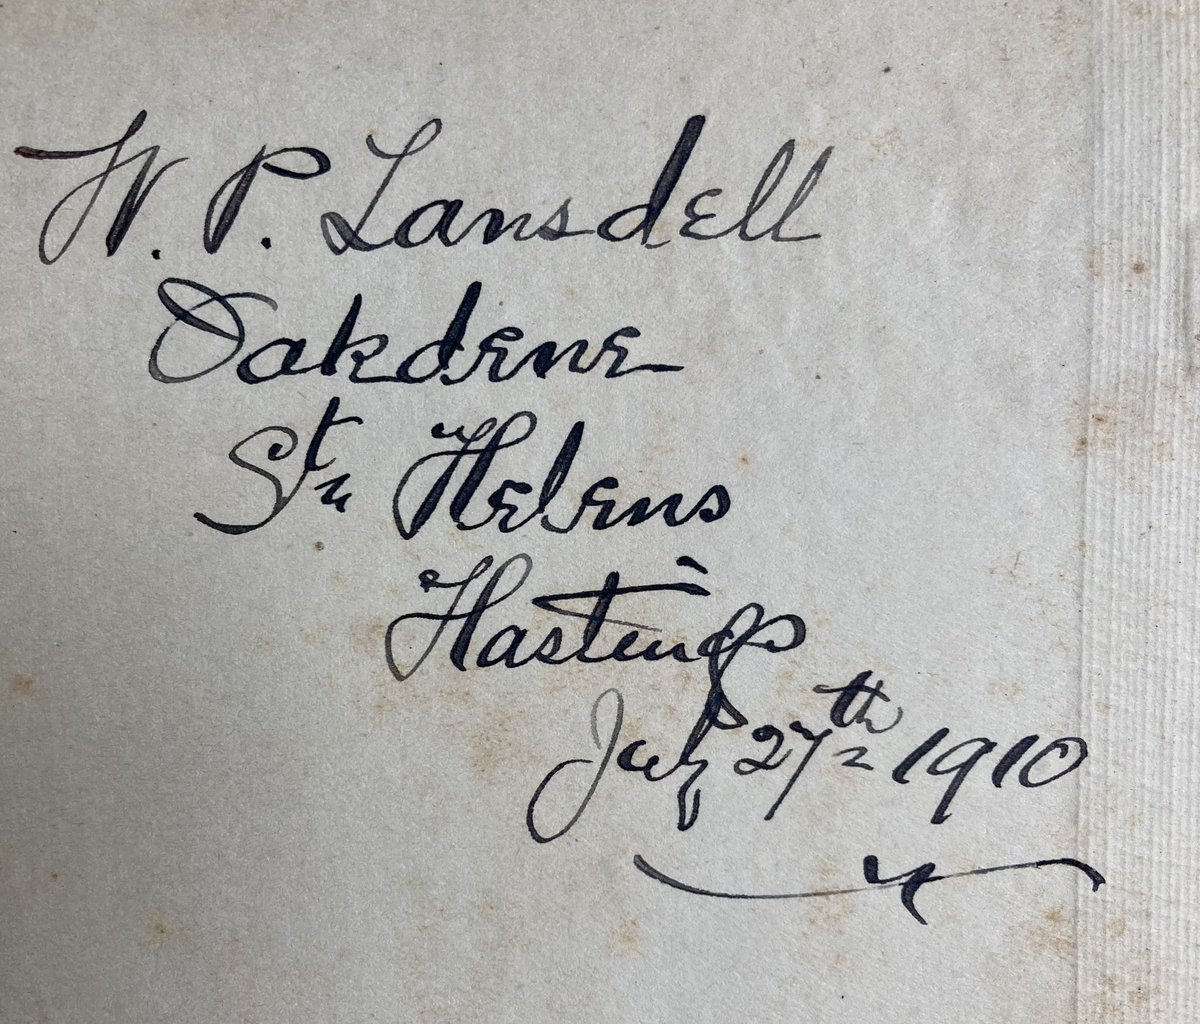 W. P. Lansdell
Oakdene
St Helens
Hastings
July 27th 1910